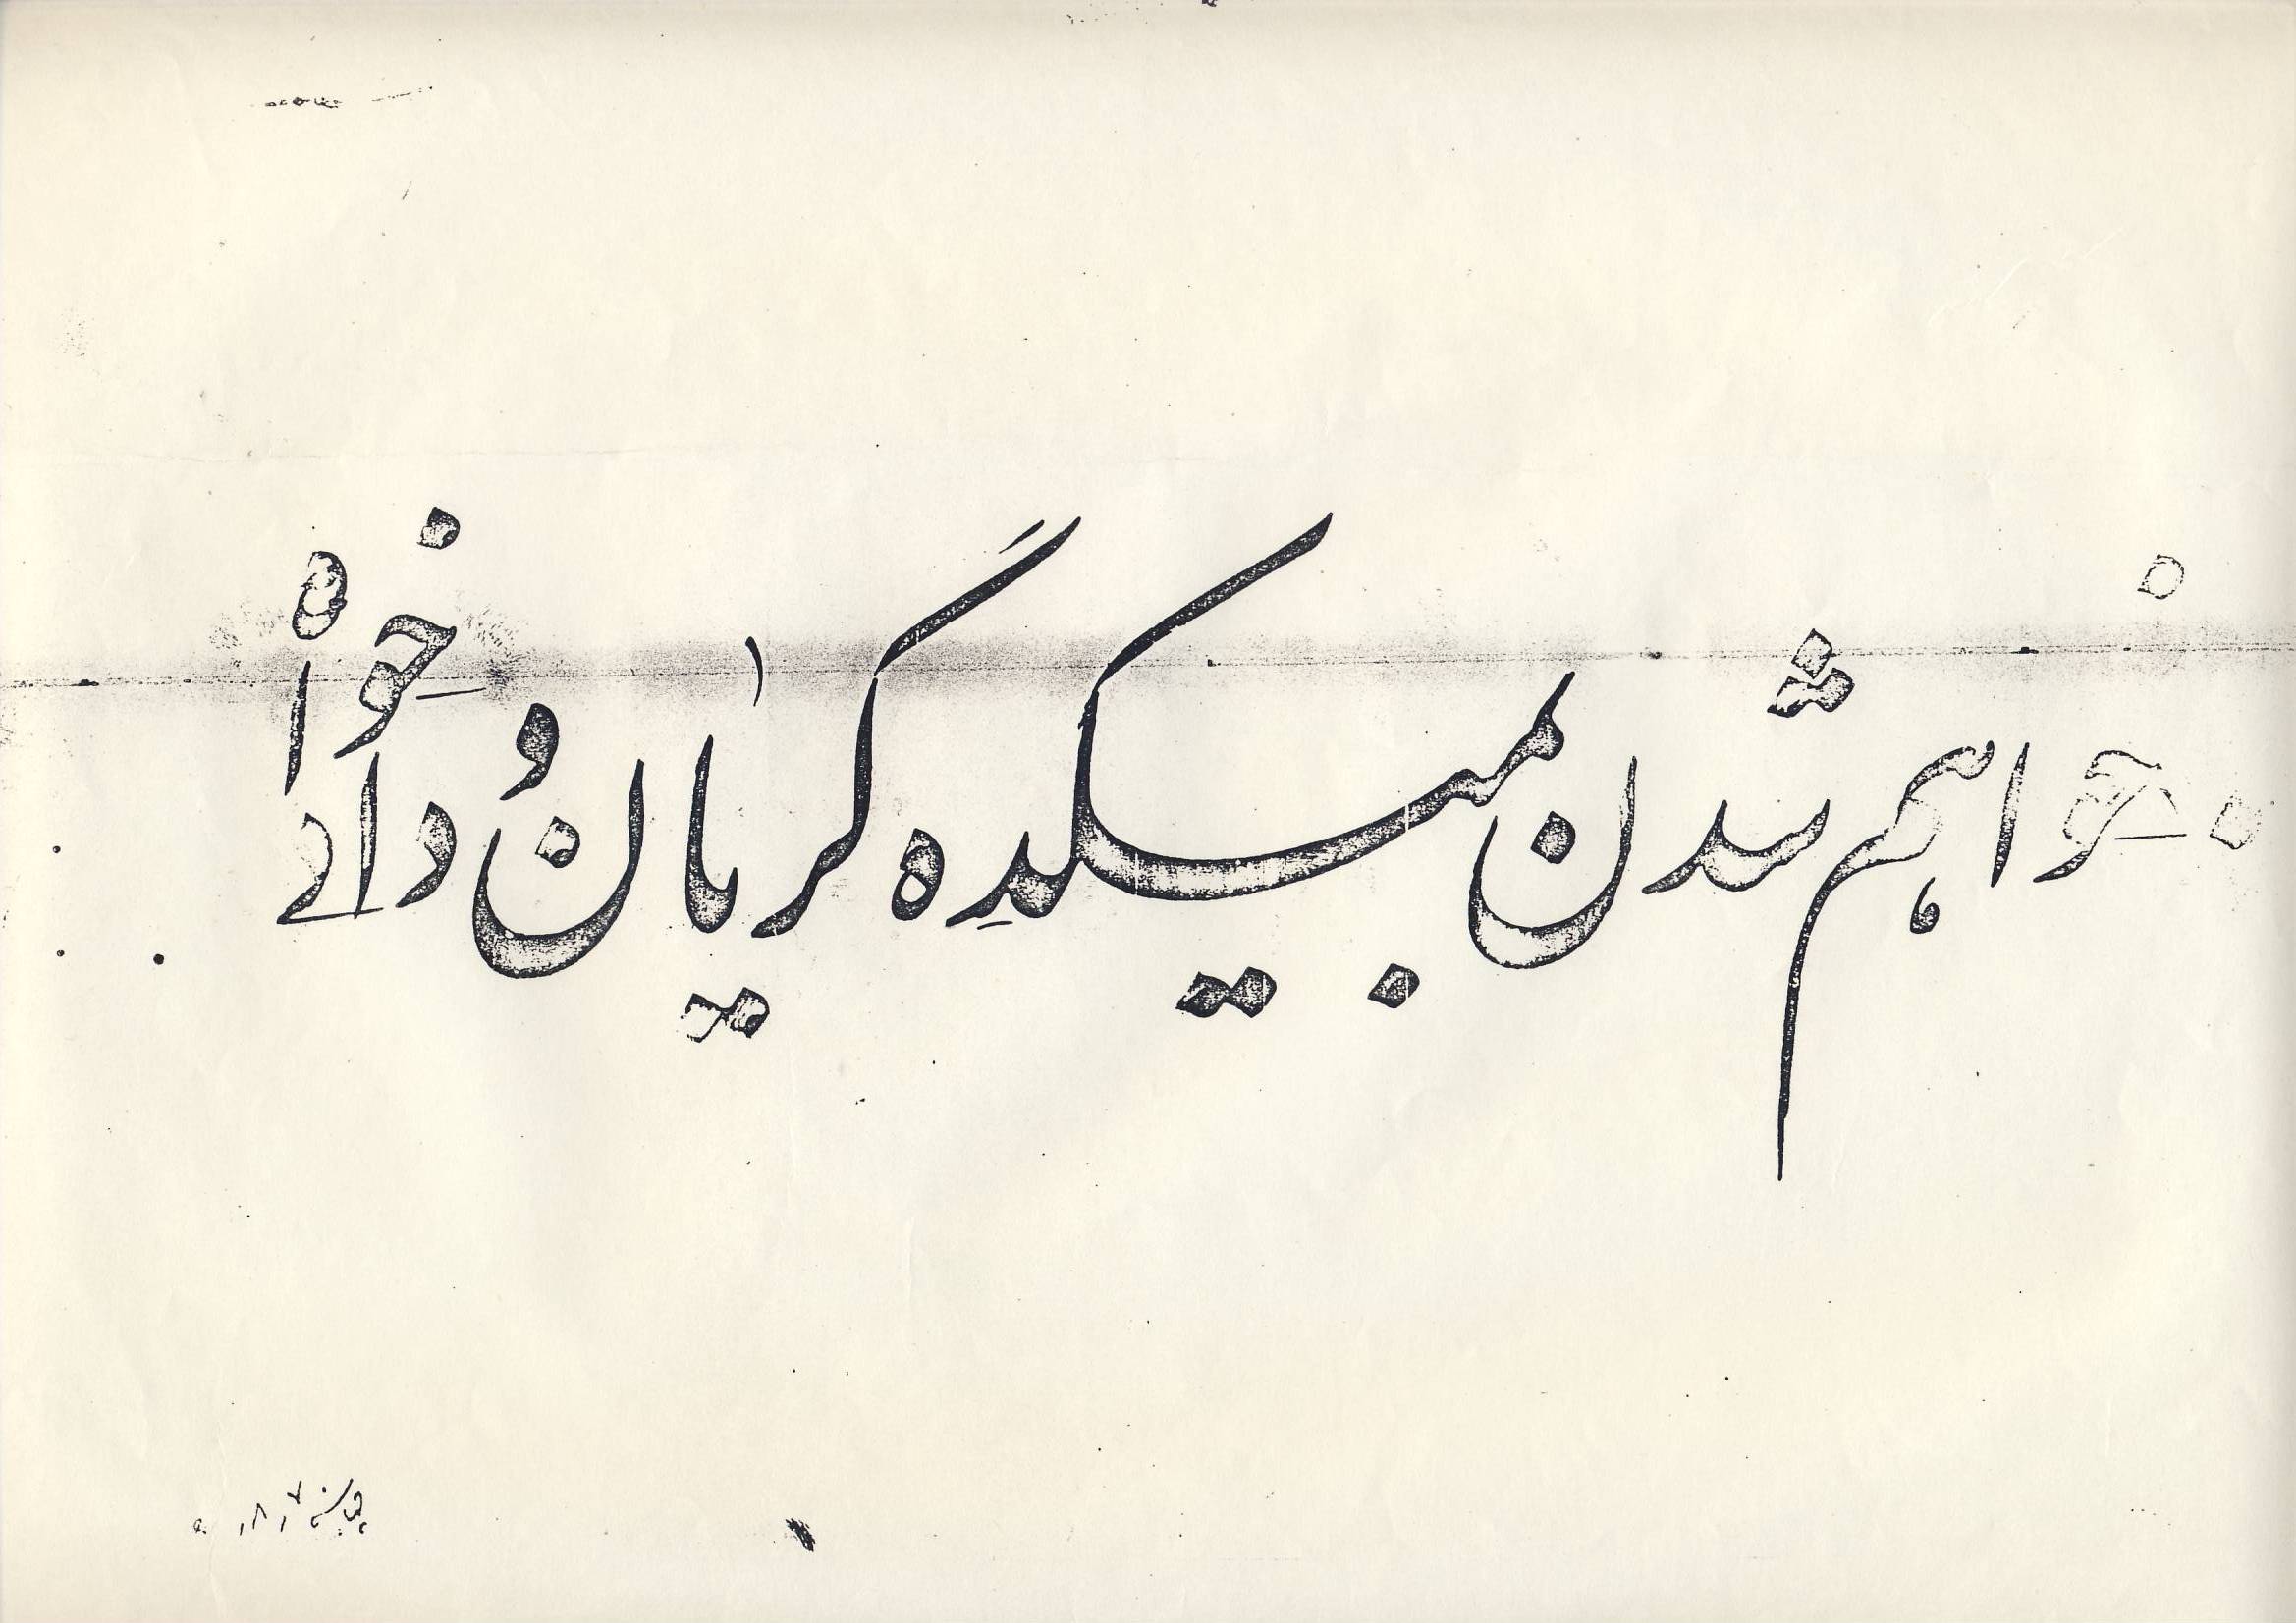 خواهم شدن بمیکده گریان و دادخواه